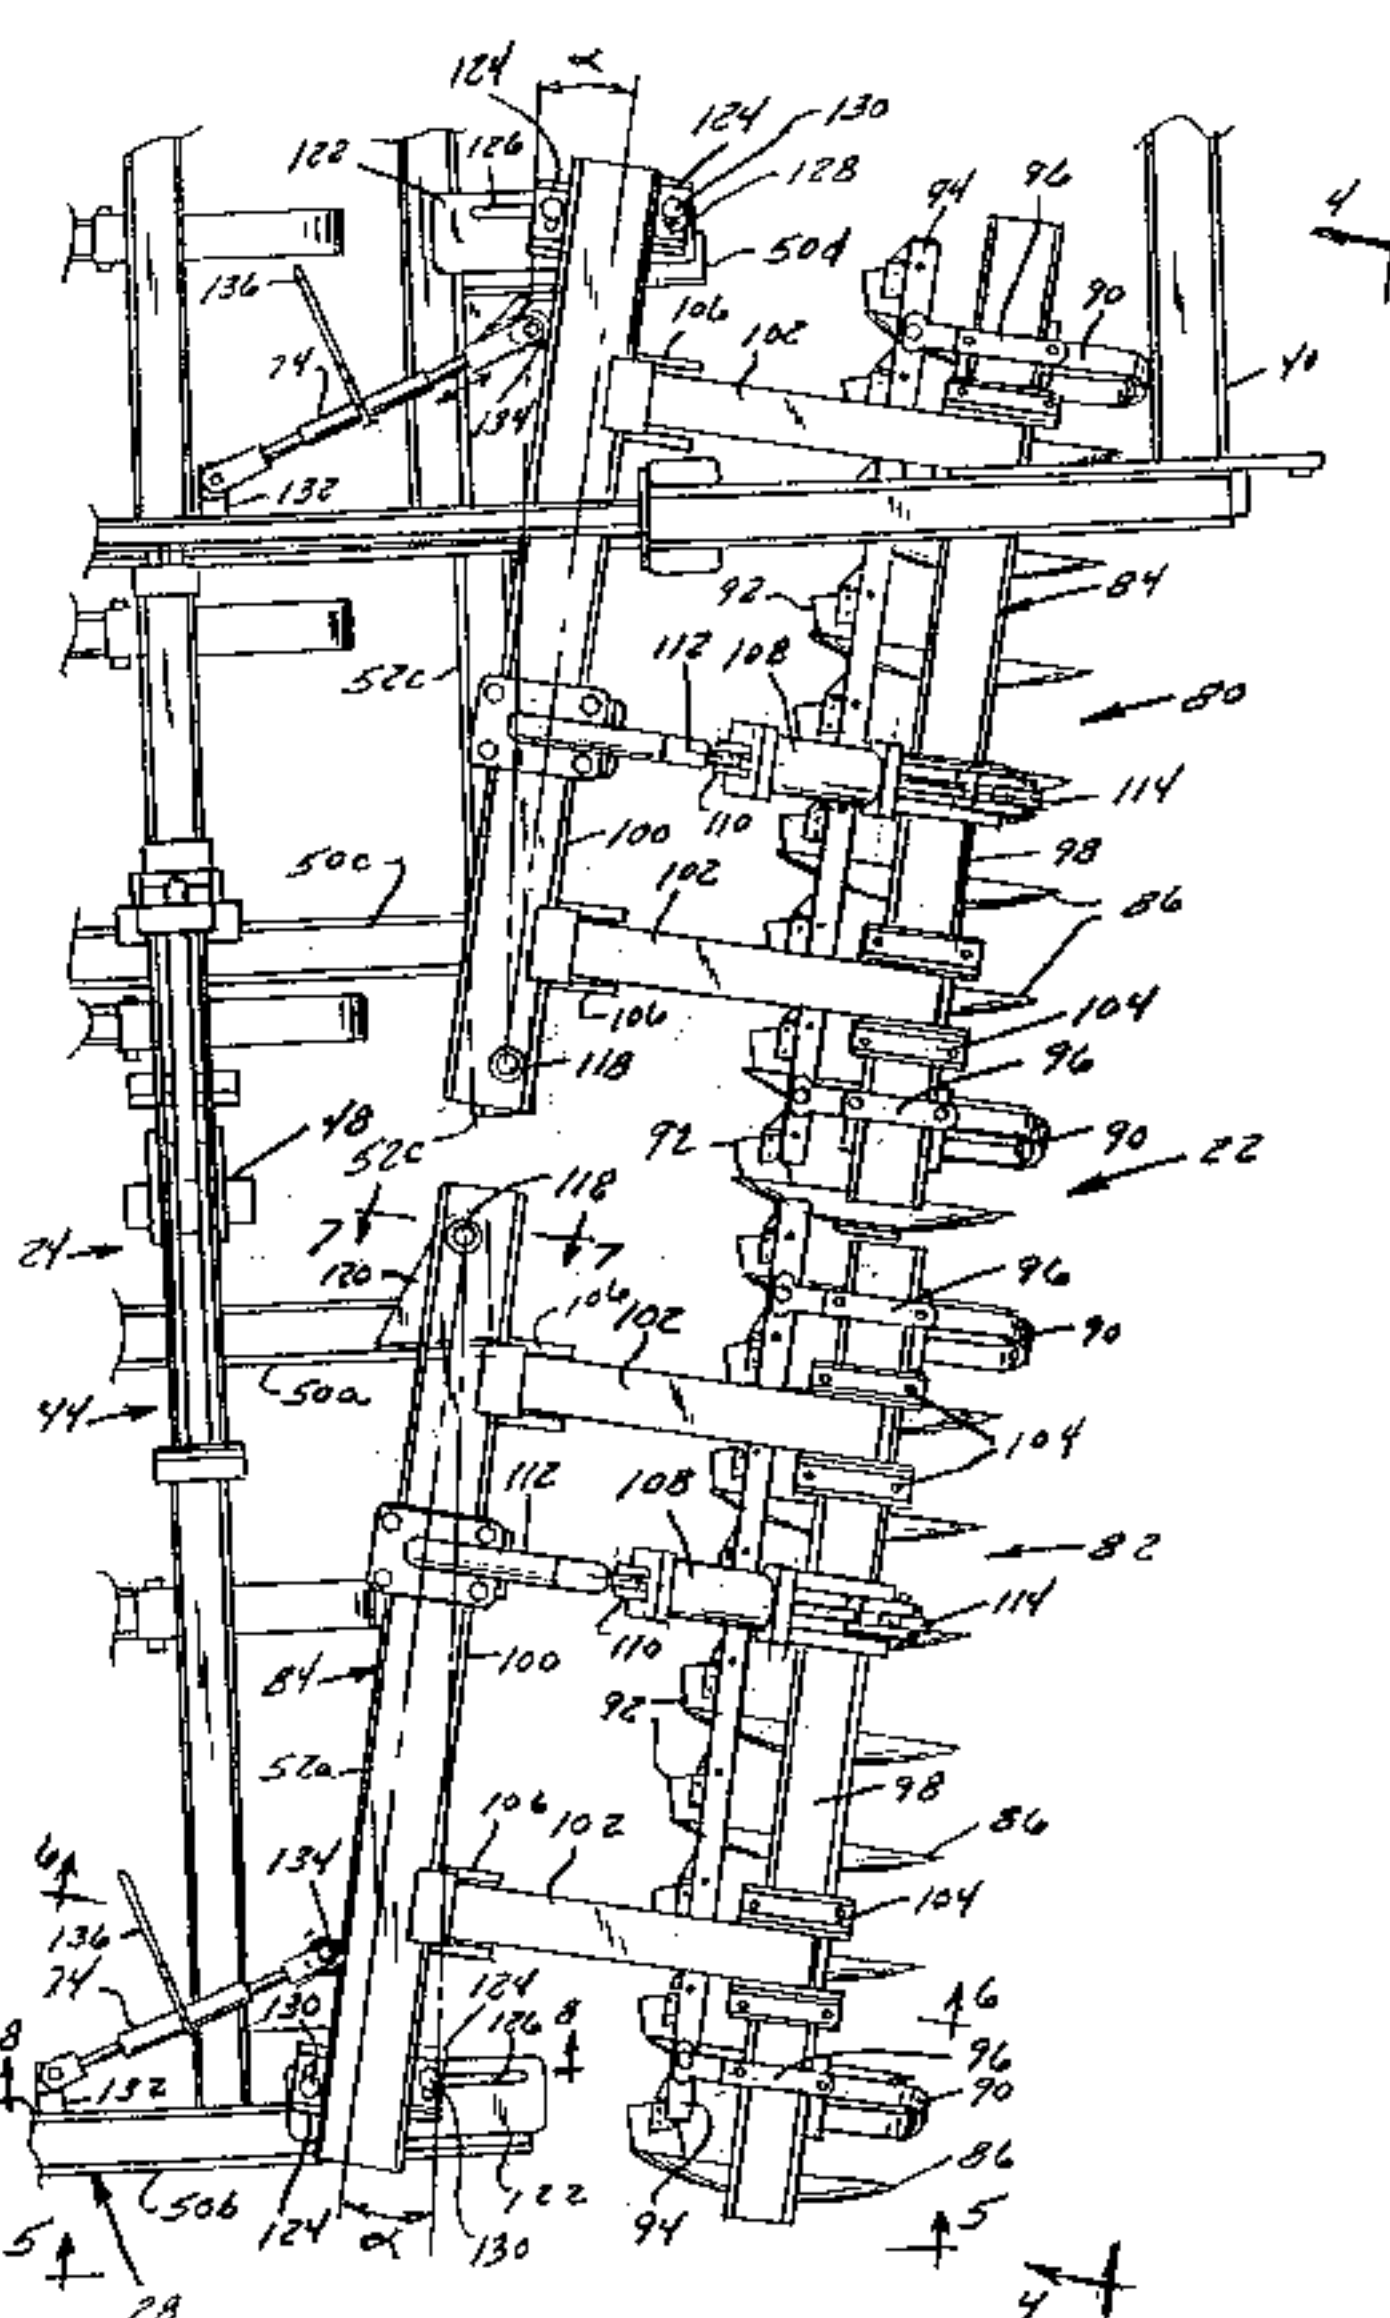 124 α
124 130
122 126
128
94 96 4
50d
136 90
106
74 102 40
134
132
92 84
112 108
52c 80
114
110
100 98
50c 102
86
106 104
118 96
48 92 90
52c 22
118
7 7
24 120 96
106 102 90
50a
44 104
112 108
82
114
110
84 100
92
52a 98
106 102 86
6 134
104
136
74 124 6
130 126 8
8 96
132 90
122 86
50b 124 94
5 α 130 5
28 4